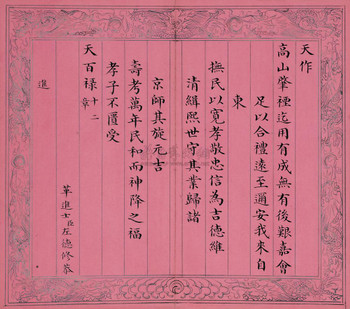 天作
高山肇禋迄用有成無有後艱嘉會
足以合禮遠至邇安我來自
東
撫民以寬孝敬忠信為吉德維
清緝熙世守其業歸諸
京師其旋元吉
壽考萬年民和而神降之福
孝子不匱受
天百祿十二章
進
革進士臣左德修恭